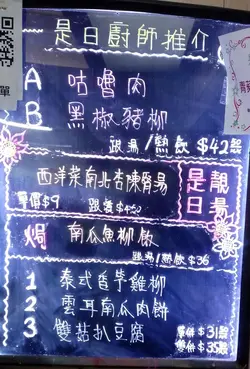 單
是日廚師推介
A 咕嚕肉
B 黑椒豬柳
跟湯/熱飲 $42起
西洋菜南北杏陳腎湯
單價$9
是日靚湯
焗 南瓜魚柳飯
跟湯/熱飲 $36
1 泰式香芋雞柳
2 雲耳南瓜肉餅
3 雙菇扒豆腐
單餸 $31起
雙餸 $35起